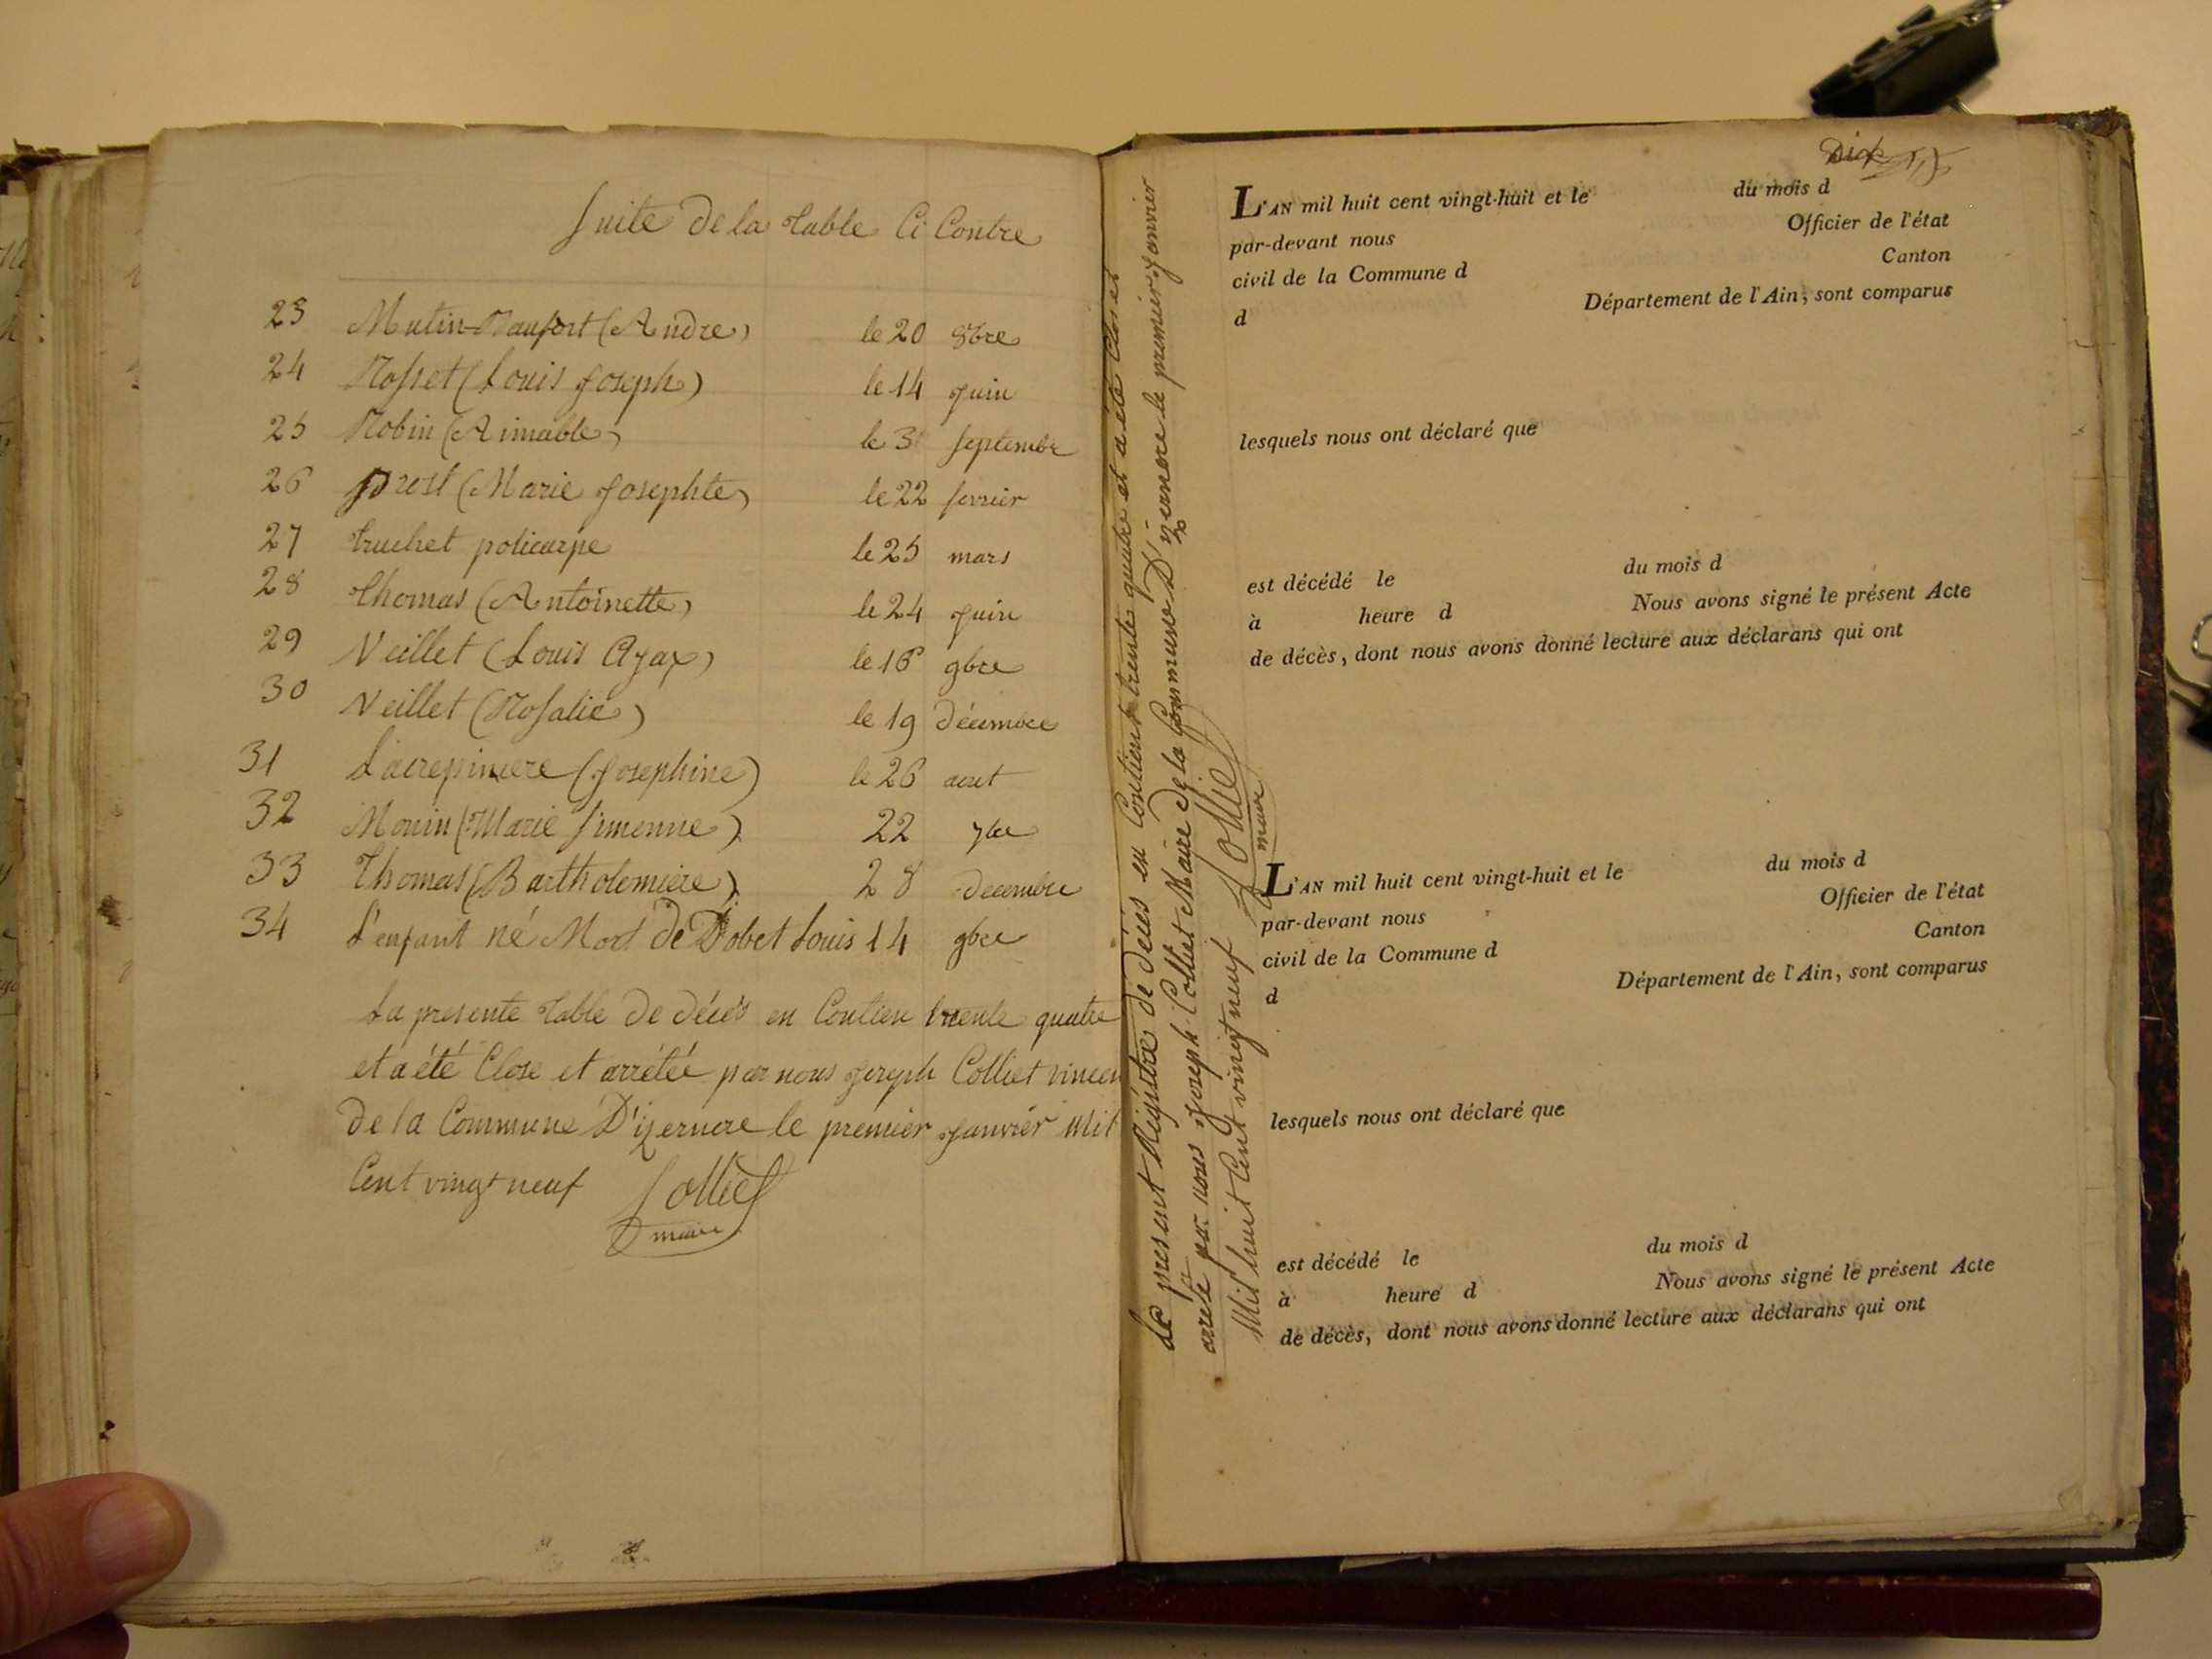 Suite De la table Ci Contre
23 Mutin-Maufort (Andre) le 20 8bre
24 Rosset (Louis Joseph) le 14 Juin
25 Robin (Aimable) le 3 Septembre
26 prost (Marie Josephte) le 22 fevrier
27 truchet policarpe le 25 mars
28 Thomas (Antoinette) le 24 Juin
29 Veillet (Louis Ajax) le 16 9bre
30 Veillet (Rosalie) le 19 Décembre
31 Lacrepiniere (Josephine) le 26 aout
32 (Marie Simenne) 22 7bre
33 Thomas (Bartholemiere) 28 decembre
34 L'enfant né Mort De Louis 14 9bre
La presente table De décès en Contien trente quatre
et a été Close et arrétée par nous Joseph Colliet
De la Commune D'izernore le premier Janvier Mil
Cent vingt neuf Colliet
maire
Le present Régistre de décès en Contient trente quatre et a été Clos et
arrêté par nous Joseph Colliet Maire De la Commune D'izernore le premier Janvier
Mil huit Cent vingt neuf Colliet
maire
Dix
L'AN mil huit cent vingt-huit et le du mois d
par-devant nous Officier de l'état
civil de la Commune d Canton
d Département de l'Ain, sont comparus
lesquels nous ont déclaré que
est décédé le du mois d
à heure d Nous avons signé le présent Acte
de décès, dont nous avons donné lecture aux déclarans qui ont
L'AN mil huit cent vingt-huit et le du mois d
par-devant nous Officier de l'état
civil de la Commune d Canton
d Département de l'Ain, sont comparus
lesquels nous ont déclaré que
est décédé le du mois d
à heure d Nous avons signé le présent Acte
de décès, dont nous avons donné lecture aux déclarans qui ont